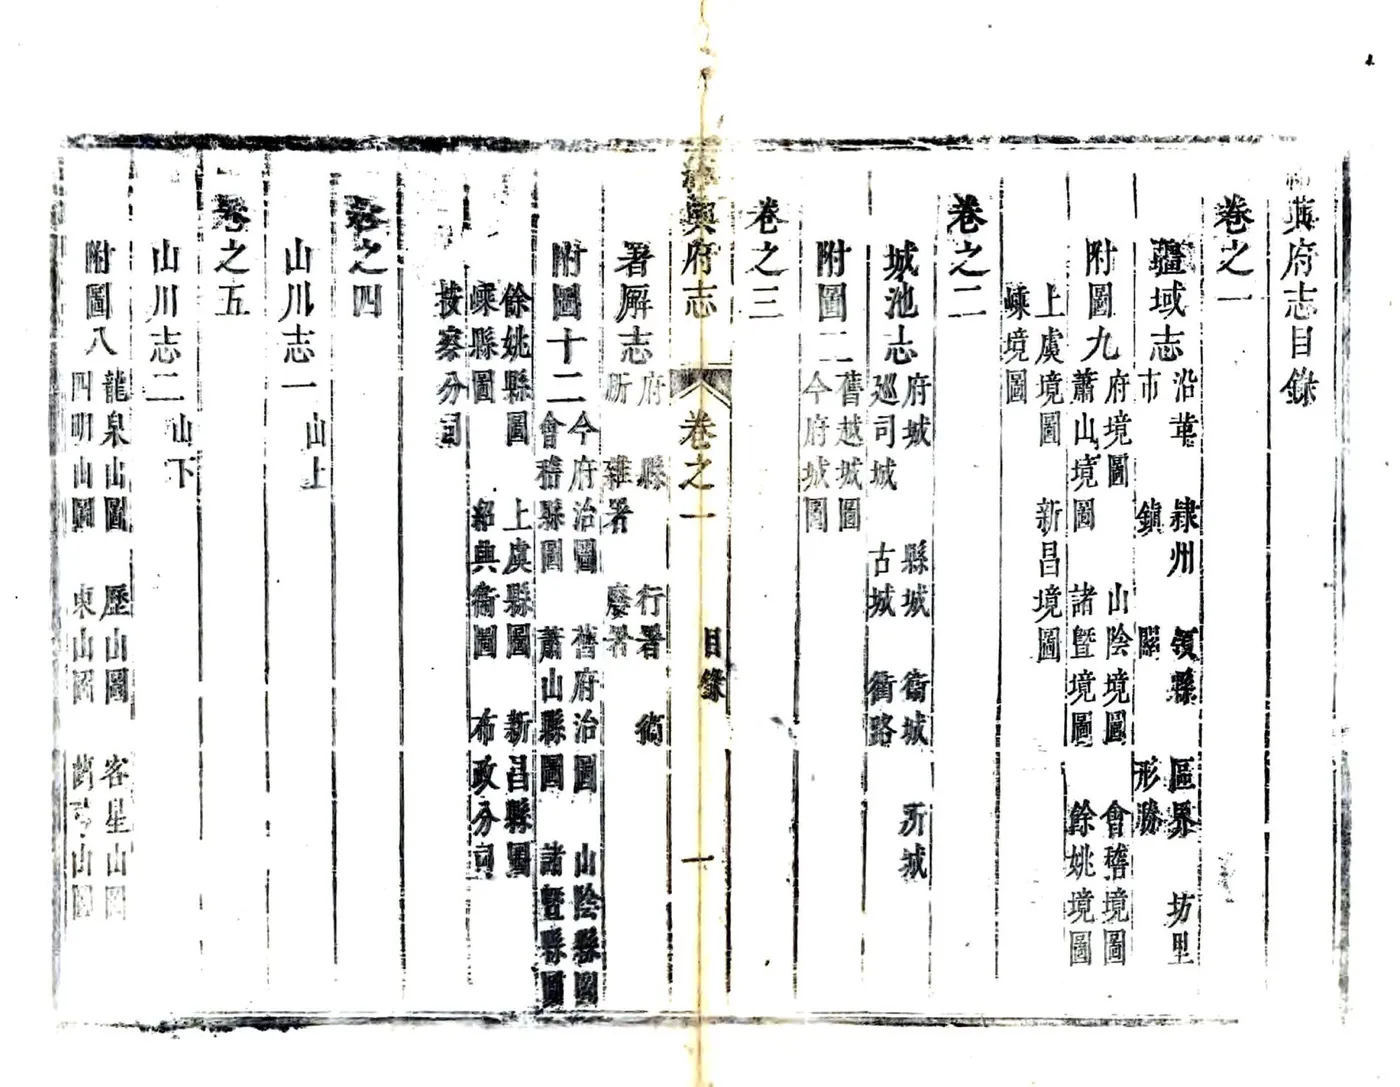 紹興府志目錄
卷之一
疆域志 沿革 隸州 領縣 區界 坊里
市 鎮 關 形勝
附圖九 府境圖 山陰境圖 會稽境圖
蕭山境圖 諸暨境圖 餘姚境圖
上虞境圖 新昌境圖
嵊境圖
卷之二
城池志 府城 縣城 衞城 所城
廵司城 古城 衢路
附圖二 舊越城圖
今府城圖
卷之三
紹興府志 卷之一 目錄 一
署廨志 府 縣 行署 衞
所 雜署 廢署
附圖十二 今府治圖 舊府治圖 山陰縣圖
會稽縣圖 蕭山縣圖 諸暨縣圖
餘姚縣圖 上虞縣圖 新昌縣圖
嵊縣圖 紹興衞圖 布政分司
按察分司
卷之四
山川志一 山上
卷之五
山川志二 山下
附圖八 龍泉山圖 歷山圖 客星山圖
四明山圖 東山圖 山圖